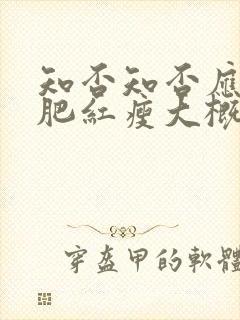 知否知否應
肥紅瘦大概
穿盔甲的軟體